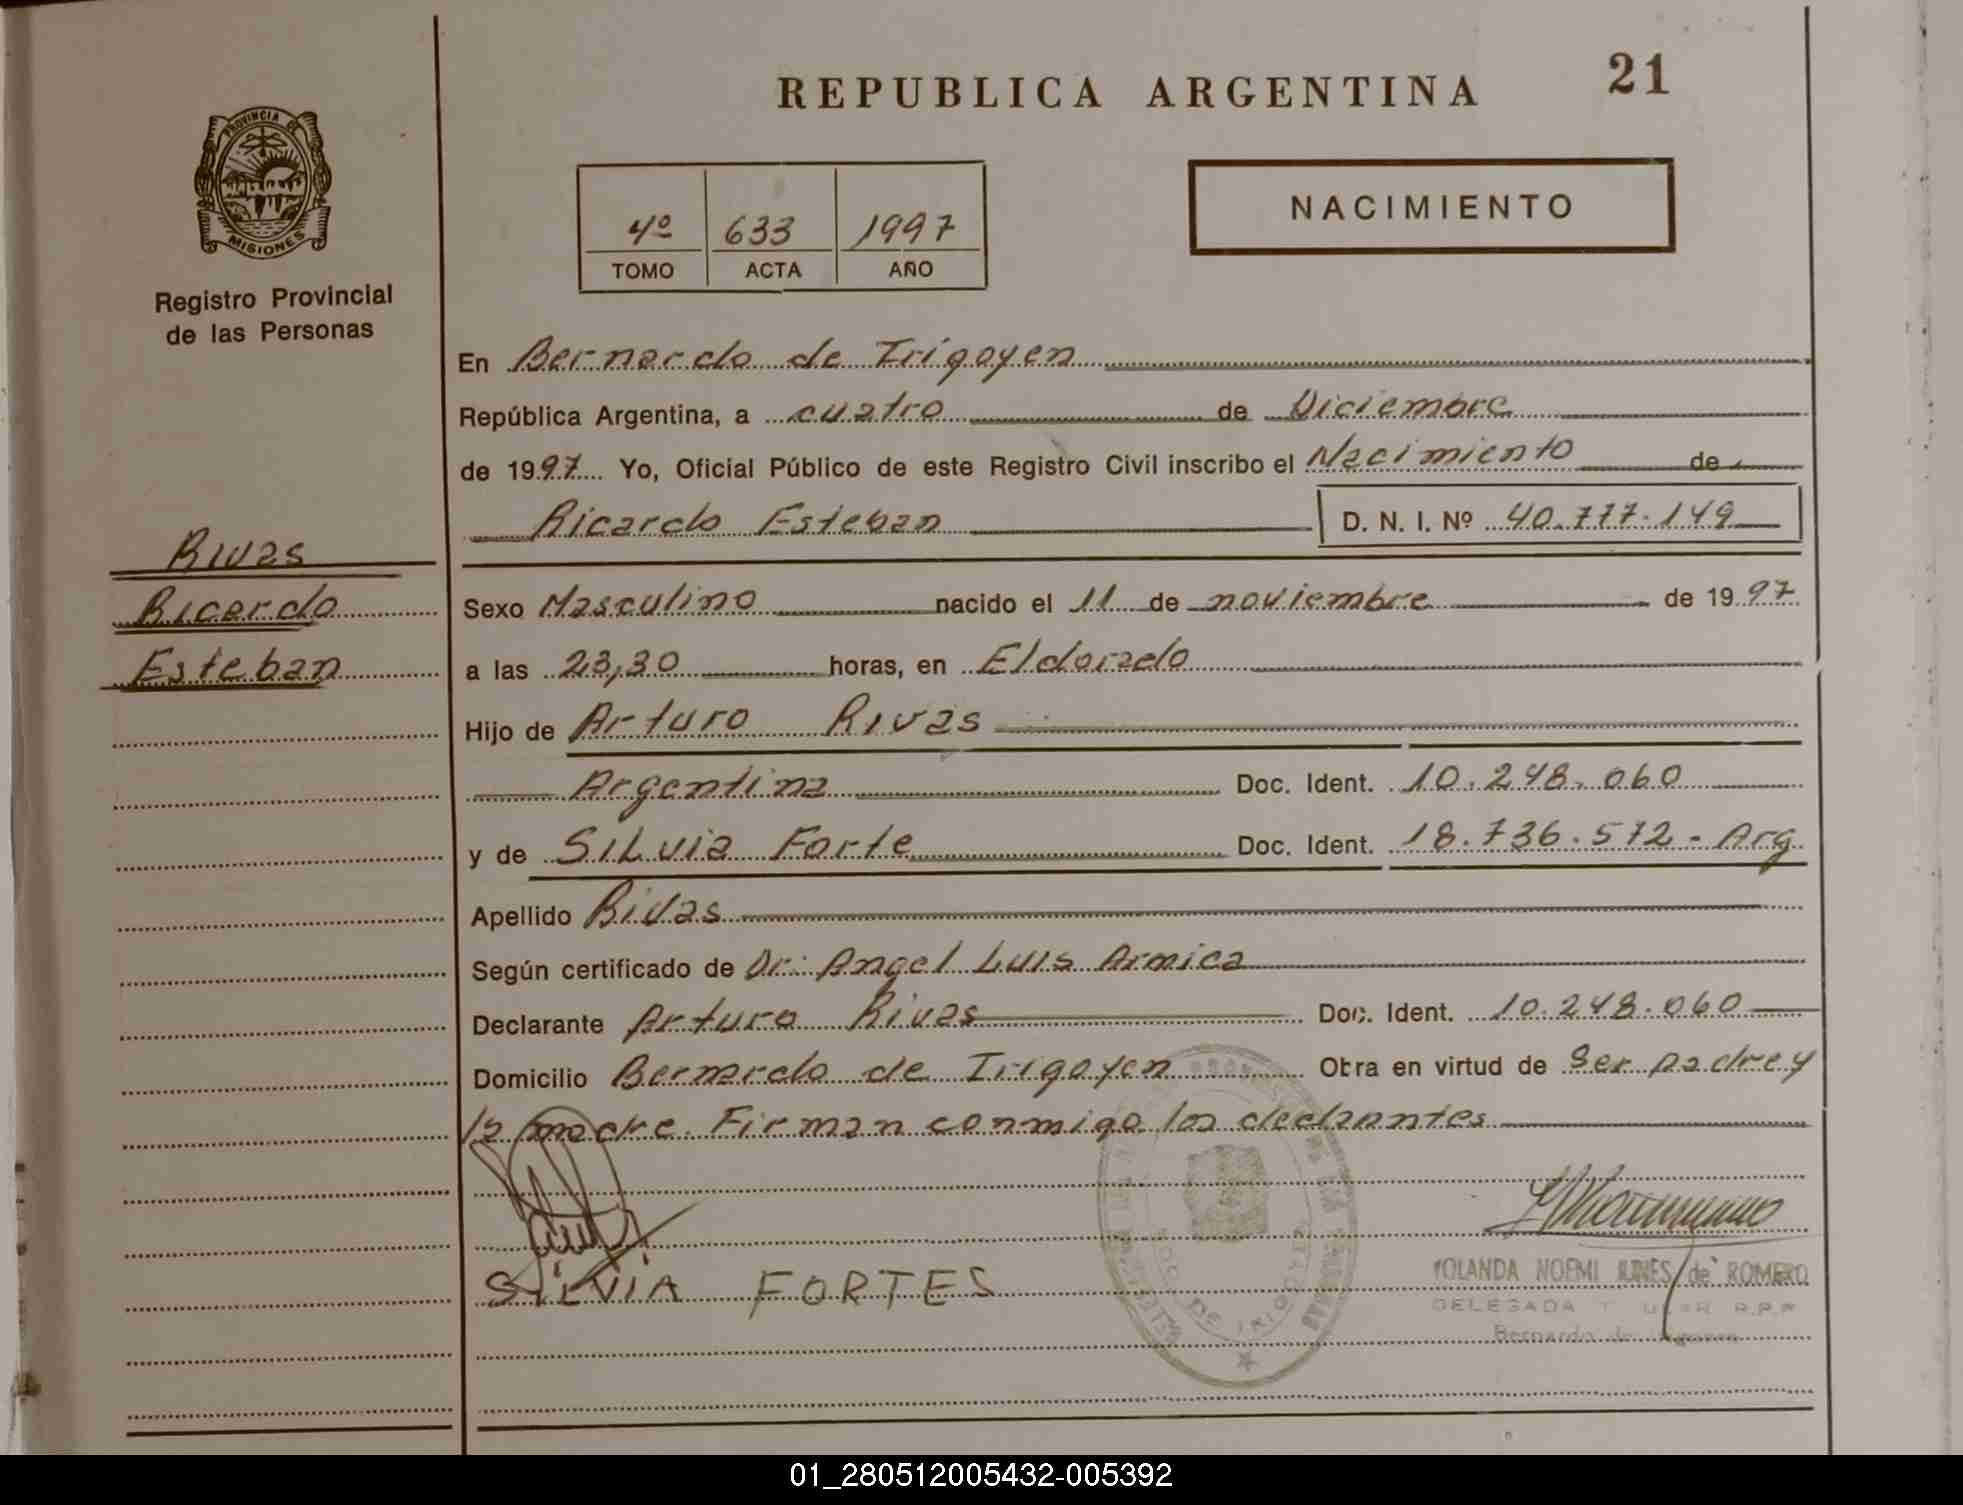 REPUBLICA ARGENTINA 21
PROVINCIA DE
MISIONES
Registro Provincial
de las Personas
4º 633 1997
TOMO ACTA AÑO
NACIMIENTO
En Bernardo de Irigoyen
República Argentina, a cuatro de Diciembre
de 1997 Yo, Oficial Público de este Registro Civil inscribo el Nacimiento de
Ricardo Esteban D. N. I. Nº 40.777.149
Rivas
Ricardo
Esteban
Sexo Masculino nacido el 11 de noviembre de 1997
a las 23,30 horas, en Eldorado
Hijo de Arturo Rivas
Argentina Doc. Ident. 10.248.060
y de SiLvia Forte Doc. Ident. 18.736.572 - Arg.
Apellido Rivas
Según certificado de Dr. Angel Luis Armica
Declarante Arturo Rivas Doc. Ident. 10.248.060
Domicilio Bernardo de Irigoyen Obra en virtud de Ser padre y
la madre. Firman conmigo los declantes
SiLViA FORTES
YOLANDA NOEMI de ROMERO
DELEGADA R.P.P.
Bernardo de Irigoyen
01_280512005432-005392